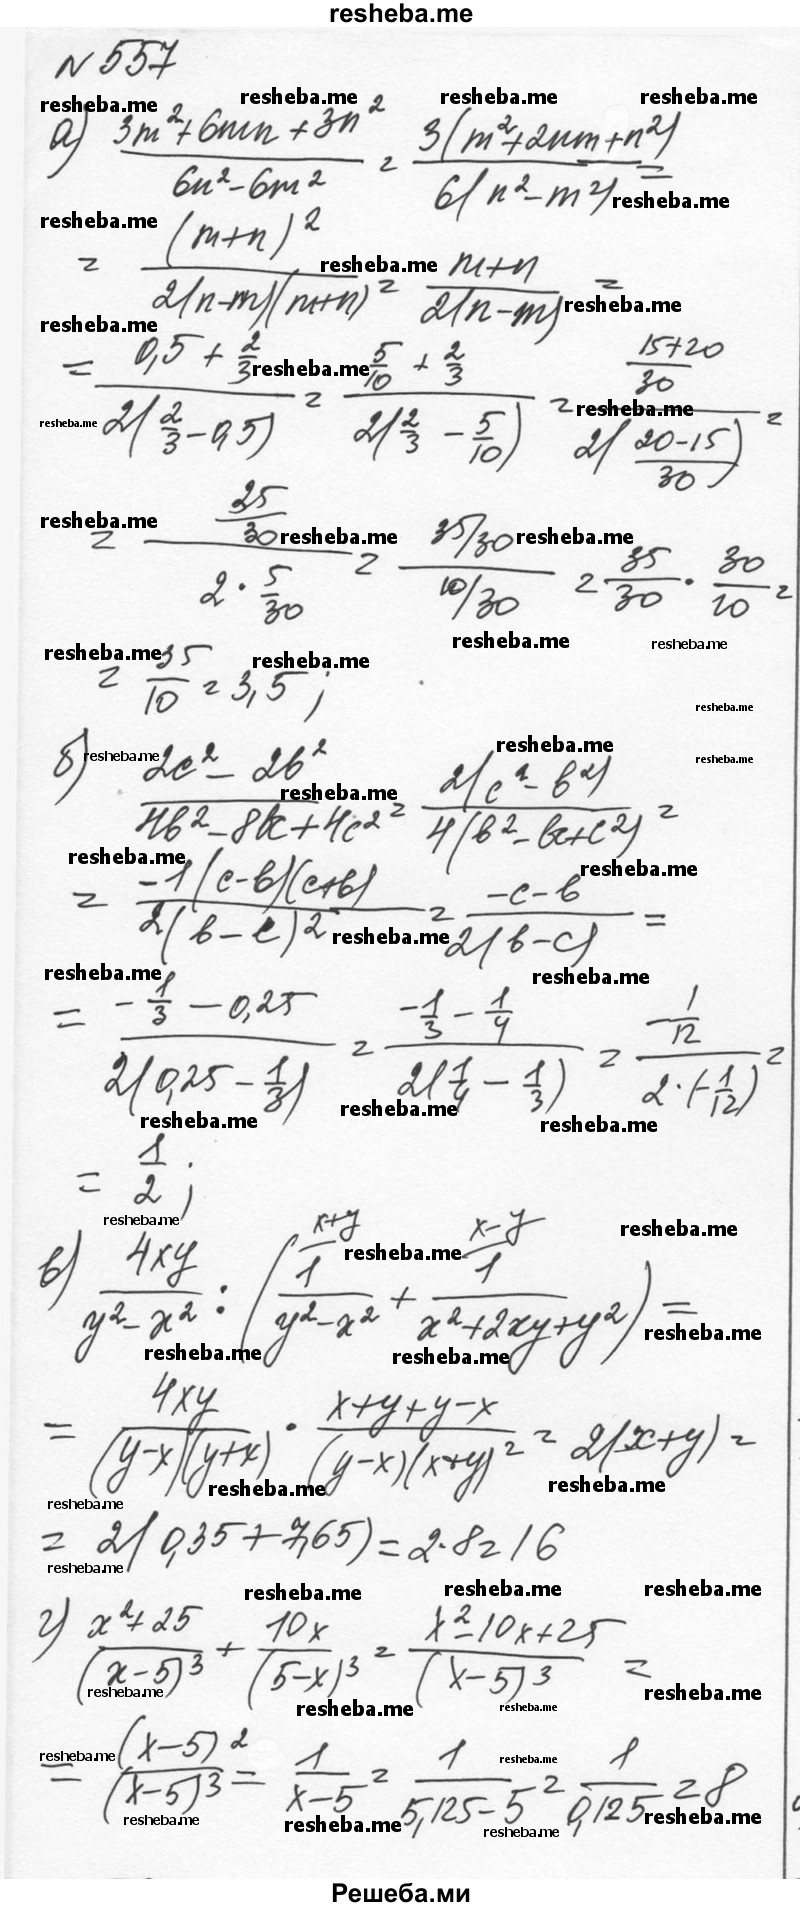 resheba.me
№ 557
а) (3m²+6mn+3n²)/(6n²-6m²) = 3(m²+2nm+n²)/6(n²-m²) =
= (m+n)²/2(n-m)(m+n) = (m+n)/2(n-m) =
= (0,5 + 2/3)/2(2/3 - 0,5) = (5/10 + 2/3)/2(2/3 - 5/10) = ((15+20)/30)/2((20-15)/30) =
= (35/30)/(2 · 5/30) = (35/30)/(10/30) = 35/30 · 30/10 =
= 35/10 = 3,5 ;
б) (2c² - 2b²)/(4b² - 8bc + 4c²) = 2(c² - b²)/4(b² - bc + c²) =
= -1(c-b)(c+b)/2(b-c)² = (-c-b)/2(b-c) =
= (-1/3 - 0,25)/2(0,25 - 1/3) = (-1/3 - 1/4)/2(1/4 - 1/3) = (-1/12)/(2·(-1/12)) =
= 1/2 ;
в) 4xy/(y²-x²) : (1/(y²-x²) x+y + 1/(x²+2xy+y²) x-y) =
= 4xy/(y-x)(y+x) · (x+y+y-x)/(y-x)(x+y)² = 2(x+y) =
= 2(0,35+7,65) = 2·8 = 16
г) (x²+25)/(x-5)³ + 10x/(5-x)³ = (x²-10x+25)/(x-5)³ =
= (x-5)²/(x-5)³ = 1/(x-5) = 1/(5,125-5) = 1/0,125 = 8
Решеба.ми